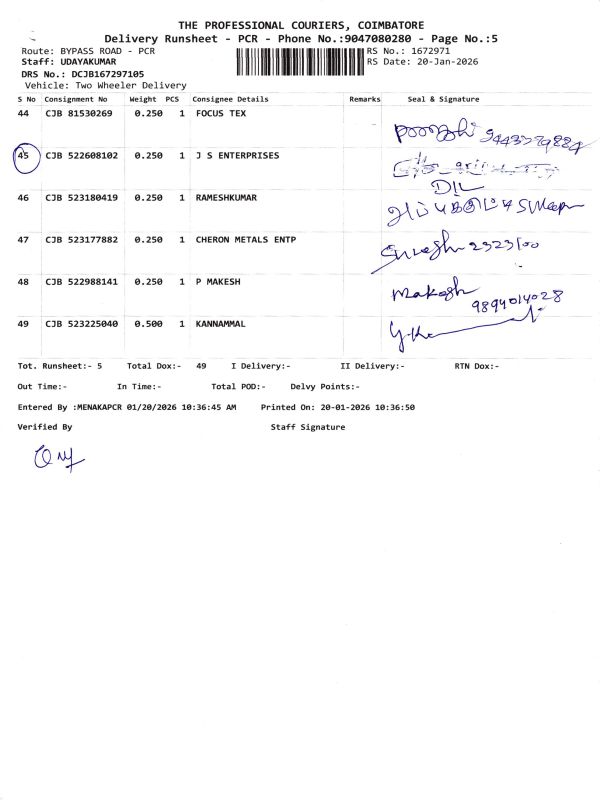 THE PROFESSIONAL COURIERS, COIMBATORE
Delivery Runsheet - PCR - Phone No.:9047080280 - Page No.:5
Route: BYPASS ROAD - PCR RS No.: 1672971
Staff: UDAYAKUMAR RS Date: 20-Jan-2026
DRS No.: DCJB167297105
Vehicle: Two Wheeler Delivery
S No Consignment No Weight PCS Consignee Details Remarks Seal & Signature
44 CJB 81530269 0.250 1 FOCUS TEX
45 CJB 522608102 0.250 1 J S ENTERPRISES
D/L
46 CJB 523180419 0.250 1 RAMESHKUMAR
47 CJB 523177882 0.250 1 CHERON METALS ENTP Suresh
48 CJB 522988141 0.250 1 P MAKESH Makesh
9894014028
49 CJB 523225040 0.500 1 KANNAMMAL
Tot. Runsheet:- 5 Total Dox:- 49 I Delivery:- II Delivery:- RTN Dox:-
Out Time:- In Time:- Total POD:- Delvy Points:-
Entered By :MENAKAPCR 01/20/2026 10:36:45 AM Printed On: 20-01-2026 10:36:50
Verified By Staff Signature